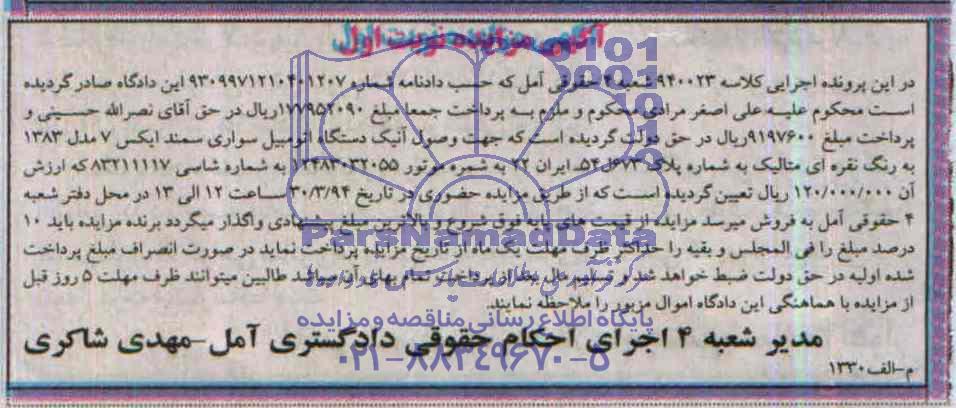 آگهی مزایده نوبت اول
در این پرونده اجرایی کلاسه ۹۴۰۰۲۳ شعبه ۴ حقوقی آمل که حسب دادنامه شماره ۹۳۰۹۹۷۱۲۱۰۴۰۱۲۰۷ این دادگاه صادر گردیده
است محکوم علیه علی اصغر مرادی محکوم و ملزم به پرداخت جمعا مبلغ ۱۷۷۹۵۲۰۹۰ریال در حق آقای نصرالله حسینی و
پرداخت مبلغ ۹۱۹۷۶۰۰ریال در حق دولت گردیده است که جهت وصول آنیک دستگاه اتومبیل سواری سمند ایکس ۷ مدل ۱۳۸۳
به رنگ نقره ای متالیک به شماره پلاک ۶۷۳ل۵۴ـایران ۲۲ به شمره موتور ۱۲۴۸۳۰۳۲۰۵۵ به شماره شاسی ۸۳۲۱۱۱۱۷ که ارزش
آن ۱۲۰/۰۰۰/۰۰۰ ریال تعیین گردیده است که از طریق مزایده حضوری در تاریخ ۳۰/۳/۹۴ ساعت ۱۲ الی ۱۳ در محل دفتر شعبه
۴ حقوقی آمل به فروش میرسد مزایده از قیمت های پایه فوق شروع و بالاترین مبلغ پیشنهادی واگذار میگردد برنده مزایده باید ۱۰
درصد مبلغ را فی المجلس و بقیه را حداکثر ظرف مهلت یک ماه از تاریخ مزایده پرداخت نماید در صورت انصراف مبلغ پرداخت
شده اولیه در حق دولت ضبط خواهد شد و تسلیم مال بعد از پرداخت تمام بهای آن میباشد طالبین میتوانند ظرف مهلت ۵ روز قبل
از مزایده با هماهنگی این دادگاه اموال مزبور را ملاحظه نمایند.
مدیر شعبه ۴ اجرای احکام حقوقی دادگستری آمل-مهدی شاکری
م-الف۱۳۳۰
ParsNamadData
پایگاه اطلاع رسانی مناقصه و مزایده
۰۲۱-۸۸۳۴۹۶۷۰-۵